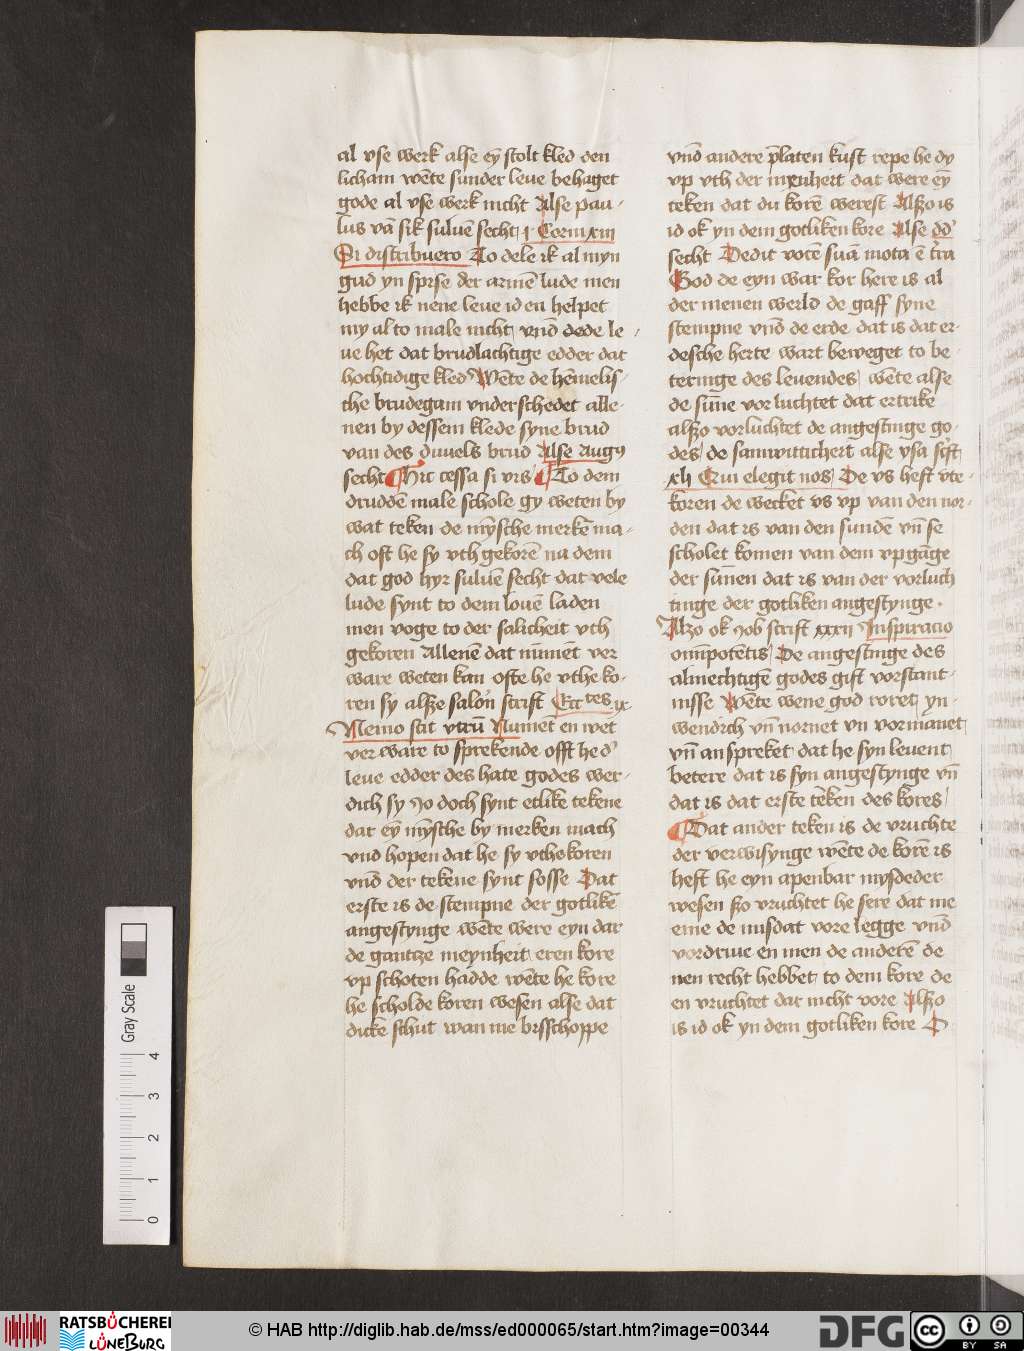 al vse werk alse eȳ stolt kled den
licham wēte sunder leue behaget
gode al vse werk nicht Alse pau-
lus vā sik suluē secht i Corin xiii
Si distribuero To dele ik al myn
gud yn sprse der armē lude men
hebbe ik nene leue id en helpet
my al to male nicht vnd dede le-
ue het dat brudlachtige edder dat
hochtidige kled Wēte de hēmelis-
che brudegam vnderschedet alle-
nen by dessem klede syne brud
van des duuels brud Alse Augꝰ
secht Hic cessa si vis To dem
druddē male schole gy weten by
wat teken de mȳsche merkē ma-
ch oft he sy vth gekorē na dem
dat god hyr suluē secht dat vele
lude synt to dem louē laden
men voge to der salicheit vth
gekoren Allenē dat nūmēt ver
ware weten kan ofte he vthe ko-
ren sy alsze salōn scrift Ecctes ix
Nemo scit vtrū Numēt en wet
ver ware to sprekende offt he dͤ
leue edder des hate godes wer-
dich sy Jo doch synt etlike tekene
dat eȳ mȳsche by merken mach
vnd hopen dat he sy vthekoren
vnd der tekene synt sosse Dat
erste is de stempne der gotlikē
angestynge wēte were eyn dar
de gantze meynheit eren kore
vp schoten hadde wēte he kore
he scholde koren wesen alse dat
dicke schut wan me bisschoppe
vnd andere p̄laten kust repe he dy
vp vth der menheit dat were eȳ
teken dat du korē werest Alzo is
id ok yn dem gotliken kore Alse dd̄
secht Dedit vocē suā mota ē t̄ra
God de eyn war kor here is al
der menen werld de gaff syne
stempne vnd de erde dat is dat er-
desche herte wart beweget to be-
teringe des leuendes wēte alse
de sūne vorluchtet dat ertrike
alszo vorluchtet de angestinge go-
des de samwitticheit alse ysa sc̄ft
xli Qui elegit nos De vs heft vte-
koren de wecket vs vp van den nor-
den dat is van den sundē vn̄ se
scholet komen van dem vpgāge
der sunnen dat is van der vorluch
tinge der gotliken angestynge.
Alzo ok Job scrift xxxii Inspiracio
omīpotētis De angestinge des
almechtigē godes gift vorstant-
nisse Wēte wene god roret yn-
wendich vn̄ vormet vn vormanet
vn̄ anspreket dat he syn leuent
betere dat is syn angestynge vn̄
dat is dat erste tēken des kores
Dat ander teken is de vruchte
der verwisynge wēte de korē is
heft he eyn apenbar mysdeder
wesen szo vruchtet he sere dat me
eme de misdat vore legge vnd
vordriue en men de anderē de
nen recht hebbet to dem kore de
en vruchtet dar nicht vore Alszo
is id ok yn dem gotliken kore D
Gray Scale
4
3
2
1
0
RATSBÜCHEREI
LÜNEBURG
© HAB http://diglib.hab.de/mss/ed000065/start.htm?image=00344
DFG
cc
BY SA